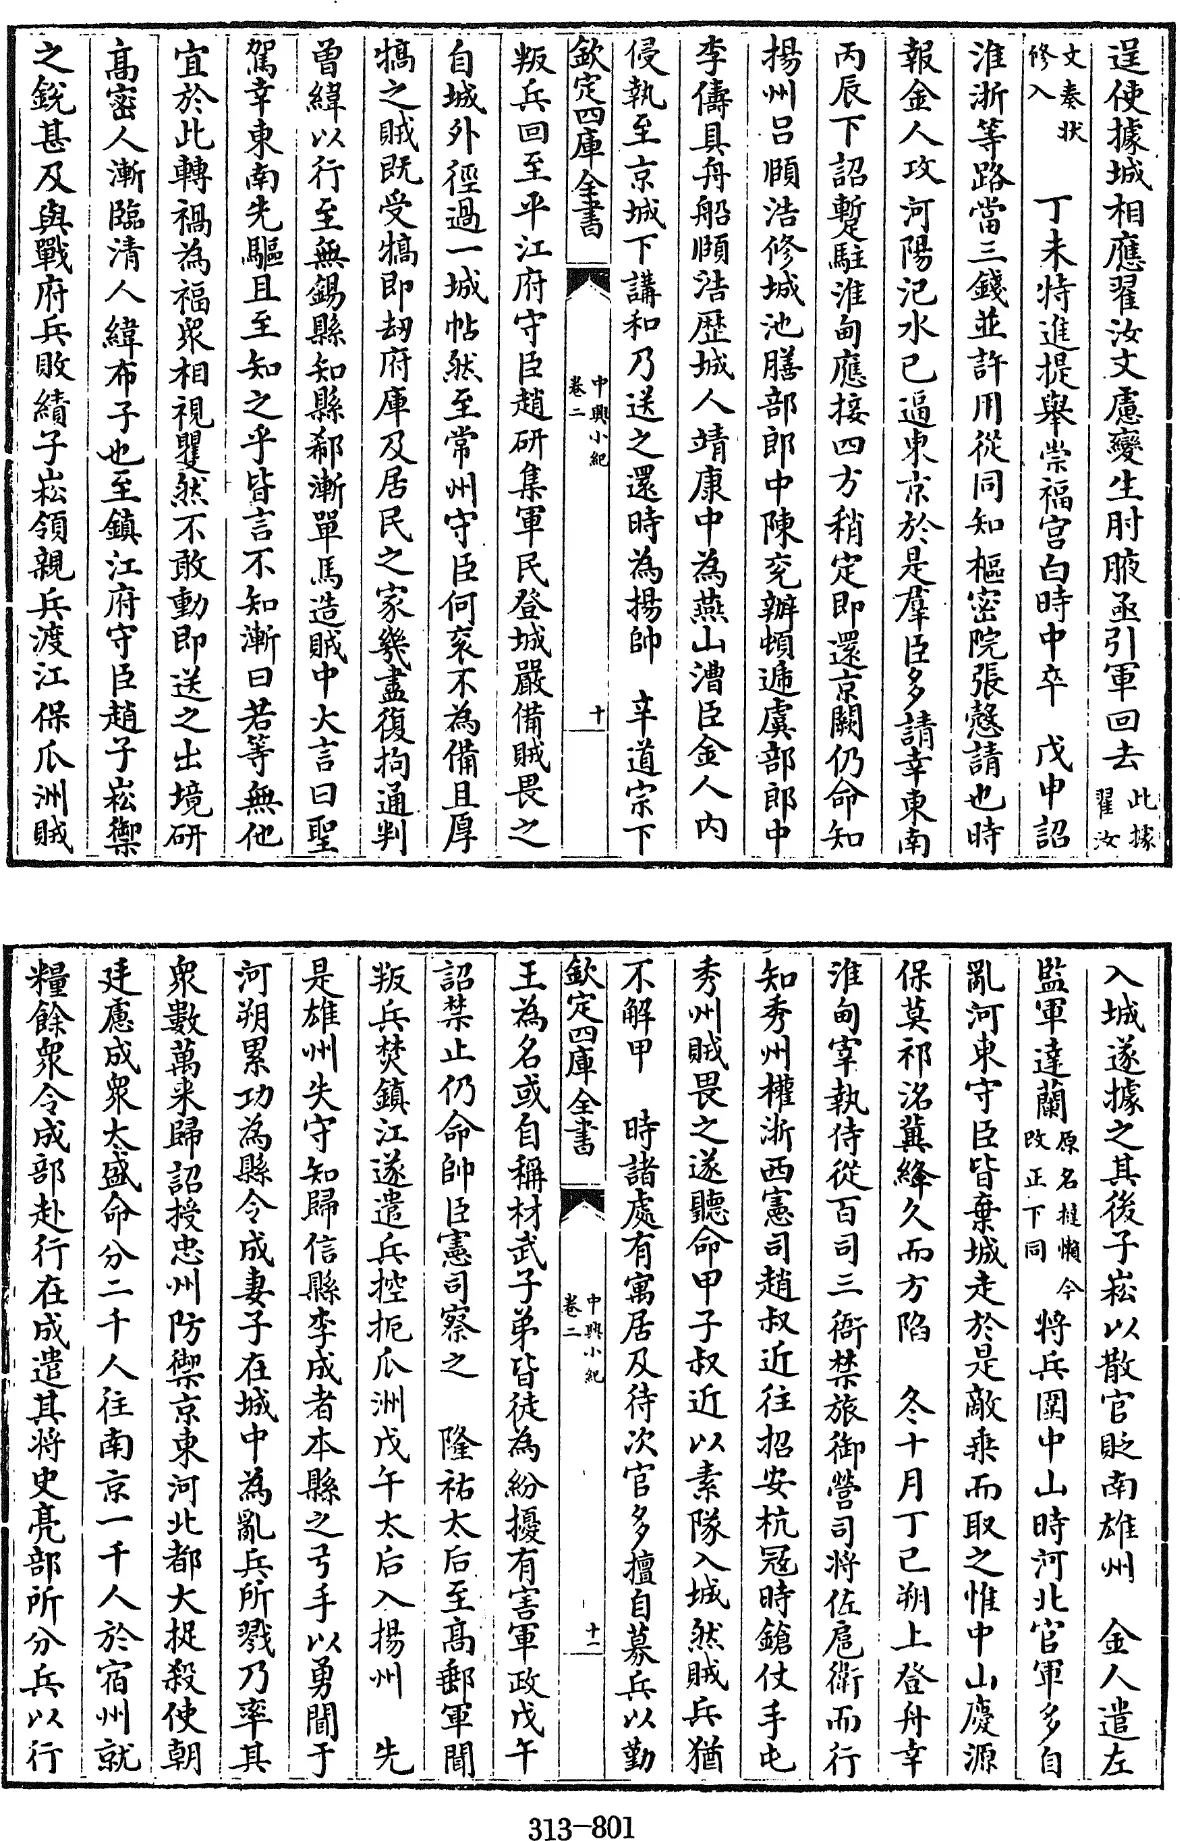 逞使據城相應翟汝文慮變生肘腋亟引軍回去此據翟汝
文奏狀修入　丁未特進提舉崇福宮白時中卒　戊申詔
淮浙等路當三錢並許用從同知樞密院張慤請也時
報金人攻河陽汜水已逼東京於是羣臣多請幸東南
丙辰下詔蹔駐淮甸應接四方稍定即還京闕仍命知
揚州呂頤浩修城池膳部郎中陳兖辦頓逓虞部郎中
李儔具舟船頤浩歴城人靖康中為燕山漕臣金人内
侵執至京城下講和乃送之還時為揚帥　辛道宗下
欽定四庫全書　中興小紀　卷二　十
叛兵回至平江府守臣趙研集軍民登城嚴備賊畏之
自城外徑過一城帖然至常州守臣何衮不為備且厚
犒之賊既受犒即刼府庫及居民之家幾盡復拘通判
曾緯以行至無錫縣知縣郗漸單馬造賊中大言曰聖
駕幸東南先驅且至知之乎皆言不知漸曰若等無他
宜於此轉禍為福衆相視瞿然不敢動即送之出境研
髙密人漸臨清人緯布子也至鎮江府守臣趙子崧禦
之銳甚及與戰府兵敗績子崧領親兵渡江保瓜洲賊
入城遂據之其後子崧以散官貶南雄州　金人遣左
監軍達蘭原名撻懶今改正下同將兵圍中山時河北官軍多自
亂河東守臣皆棄城走於是敵乘而取之惟中山慶源
保莫祁洺冀絳久而方陷　冬十月丁巳朔上登舟幸
淮甸宰執侍從百司三衙禁旅御營司將佐扈衛而行
知秀州權浙西憲司趙叔近往招安杭冦時鎗仗手屯
秀州賊畏之遂聽命甲子叔近以素隊入城然賊兵猶
不解甲　時諸處有寓居及待次官多擅自募兵以勤
欽定四庫全書　中興小紀　卷二　十一
王為名或自稱材武子弟皆徒為紛擾有害軍政戊午
詔禁止仍命帥臣憲司察之　隆祐太后至髙郵軍聞
叛兵焚鎮江遂遣兵控扼瓜洲戊午太后入揚州　先
是雄州失守知歸信縣李成者本縣之弓手以勇聞于
河朔累功為縣令成妻子在城中為亂兵所戮乃率其
衆數萬来歸詔授忠州防禦京東河北都大捉殺使朝
廷慮成衆太盛命分二千人往南京一千人於宿州就
糧餘衆令成部赴行在成遣其將史亮部所分兵以行
313-801